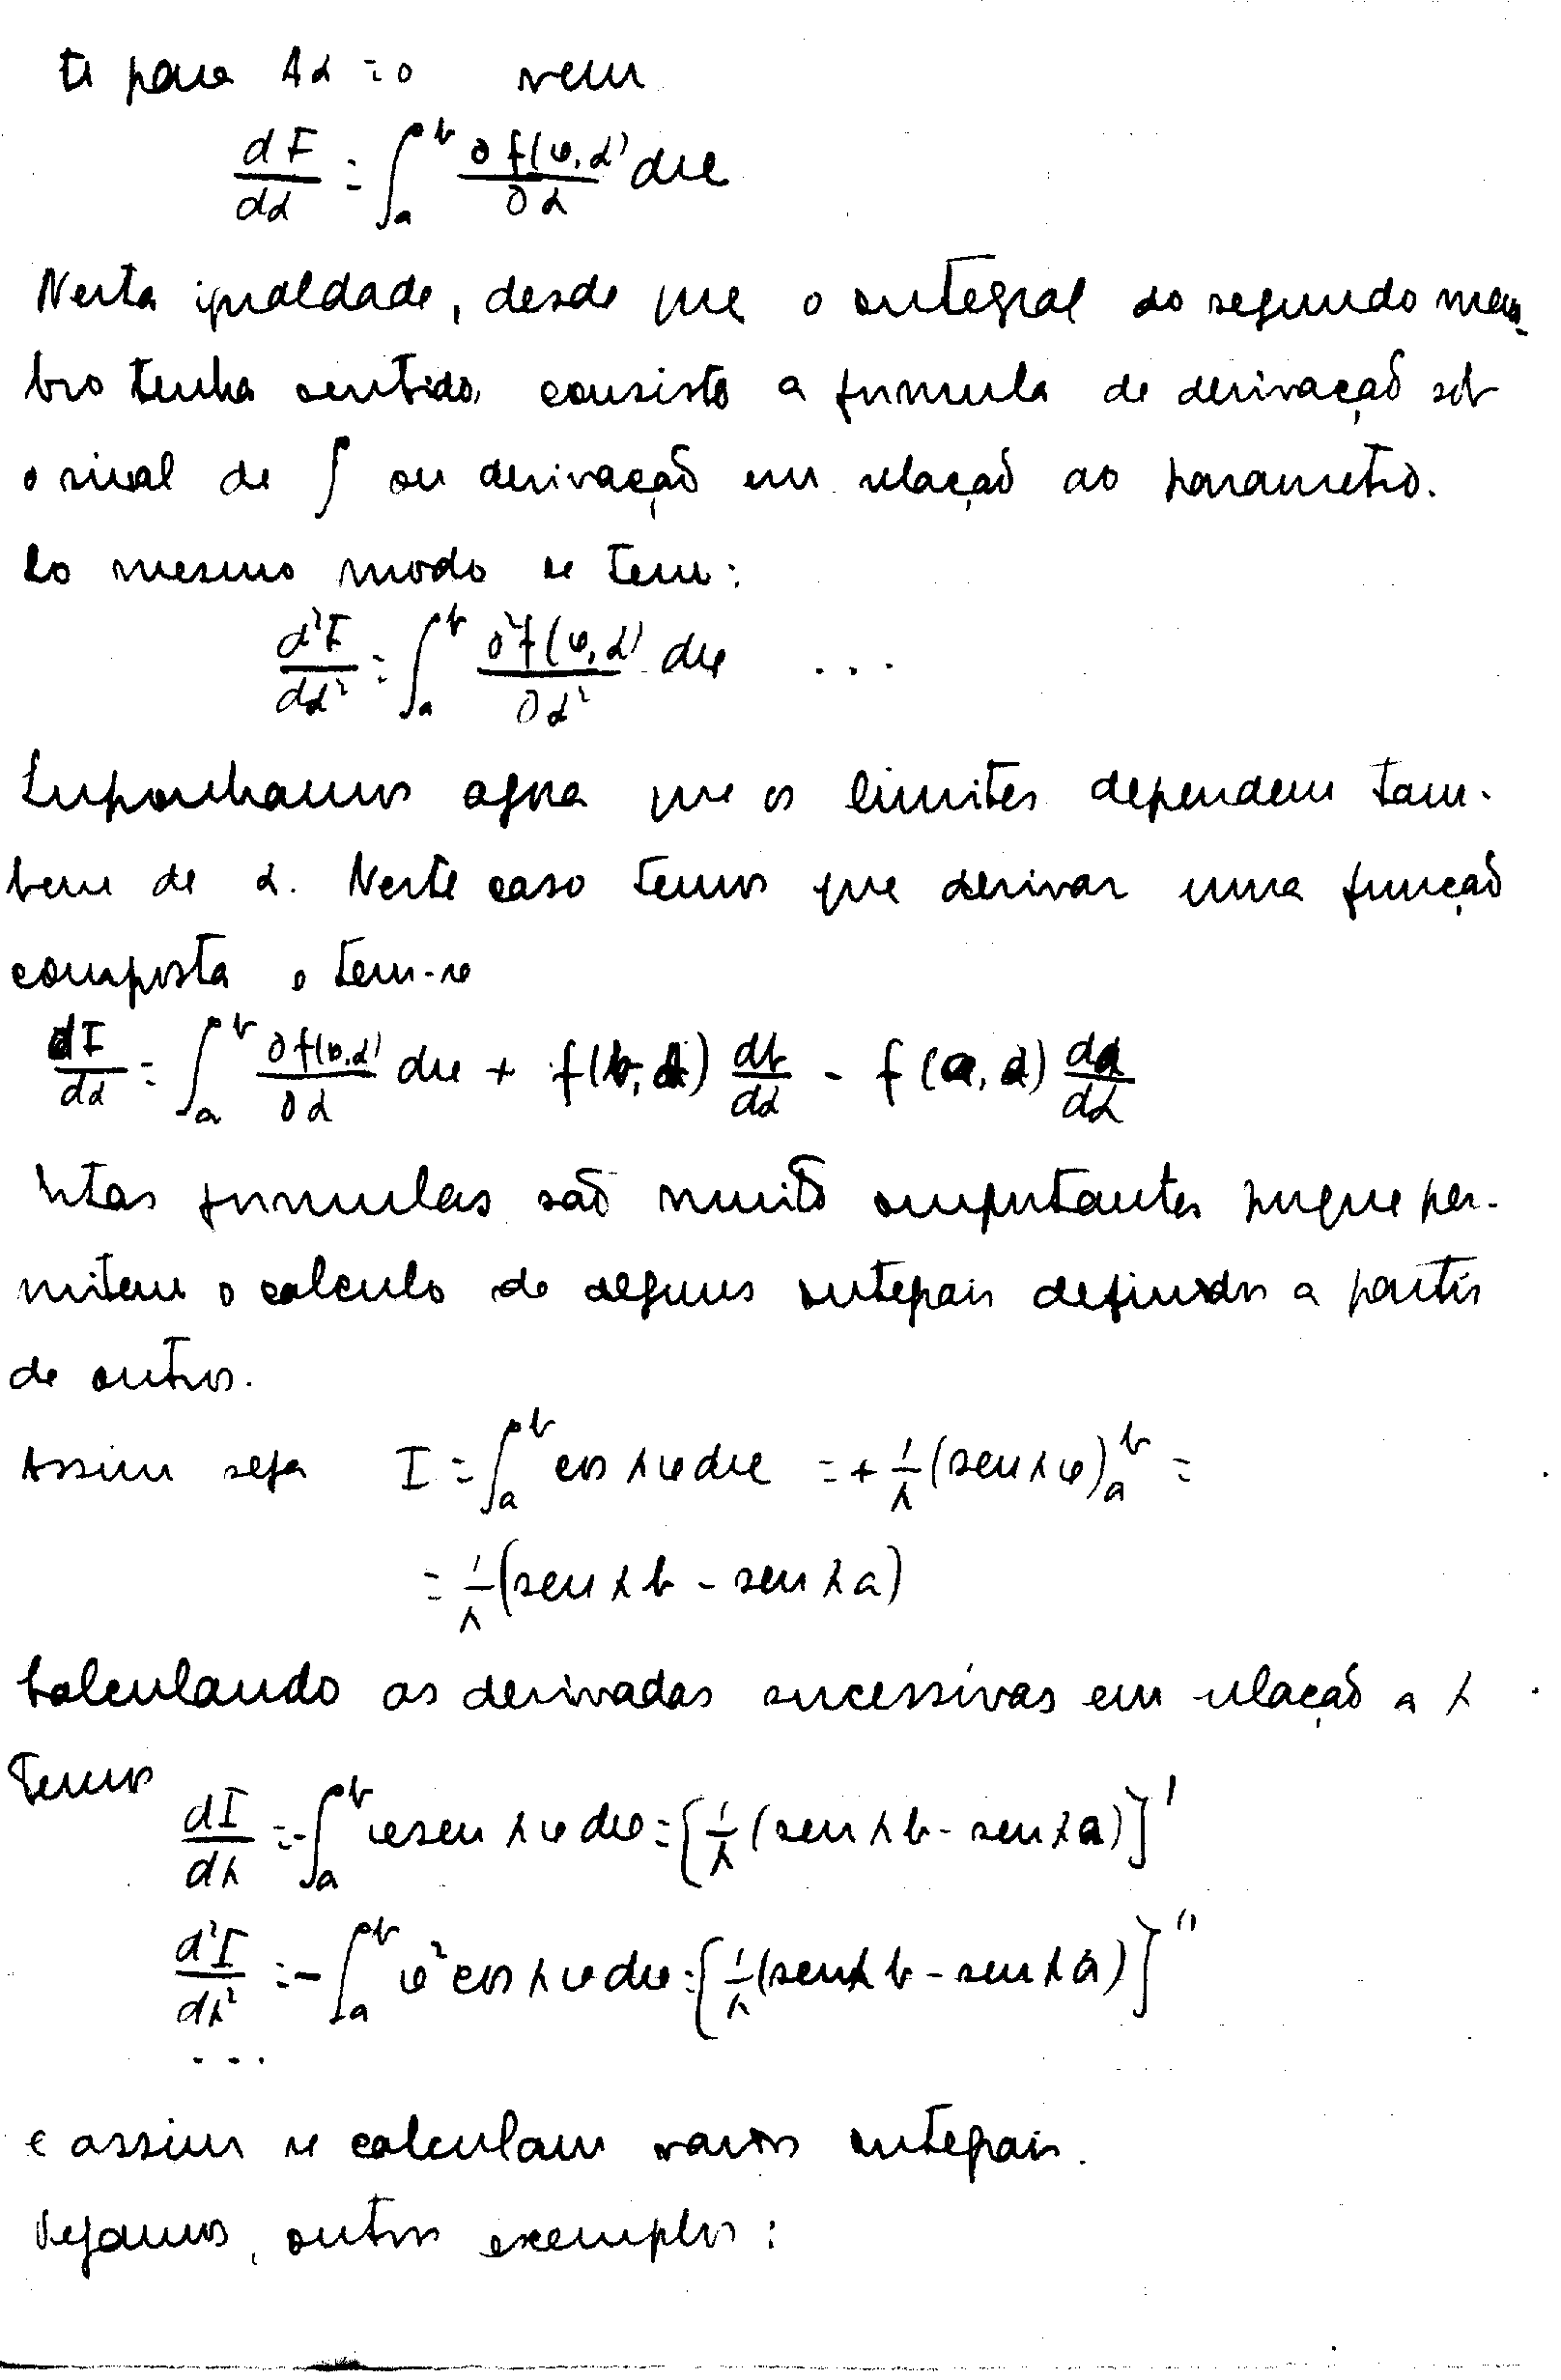 E para Δα = 0 vem
dF/dα = ∫_a^b ∂f(x,α)/∂α dx
Nesta igualdade, desde que o integral do segundo mem-
bro tenha sentido, consiste a formula de derivação sob
o sinal de ∫ ou derivação em relação ao parametro.
Do mesmo modo se tem:
d²F/dα² = ∫_a^b ∂²f(x,α)/∂α² dx ...
Suponhamos agora que os limites dependem tam-
bem de α. Neste caso temos que derivar uma função
composta e tem-se
dI/dα = ∫_a^b ∂f(x,α)/∂α dx + f(b,α) db/dα - f(a,α) da/dα
Estas formulas são muito importantes porque per-
mitem o calculo de alguns integrais definidos a partir
de outros.
Assim seja I = ∫_a^b cos λx dx = + 1/λ (sen λx)_a^b =
= 1/λ (sen λb - sen λa)
Calculando as derivadas sucessivas em relação a λ
temos
dI/dλ = -∫_a^b x sen λx dx = [1/λ (sen λb - sen λa)]'
d²I/dλ² = -∫_a^b x² cos λx dx = [1/λ (sen λb - sen λa)]''
...
e assim se calculam varios integrais.
Vejamos, outros exemplos: